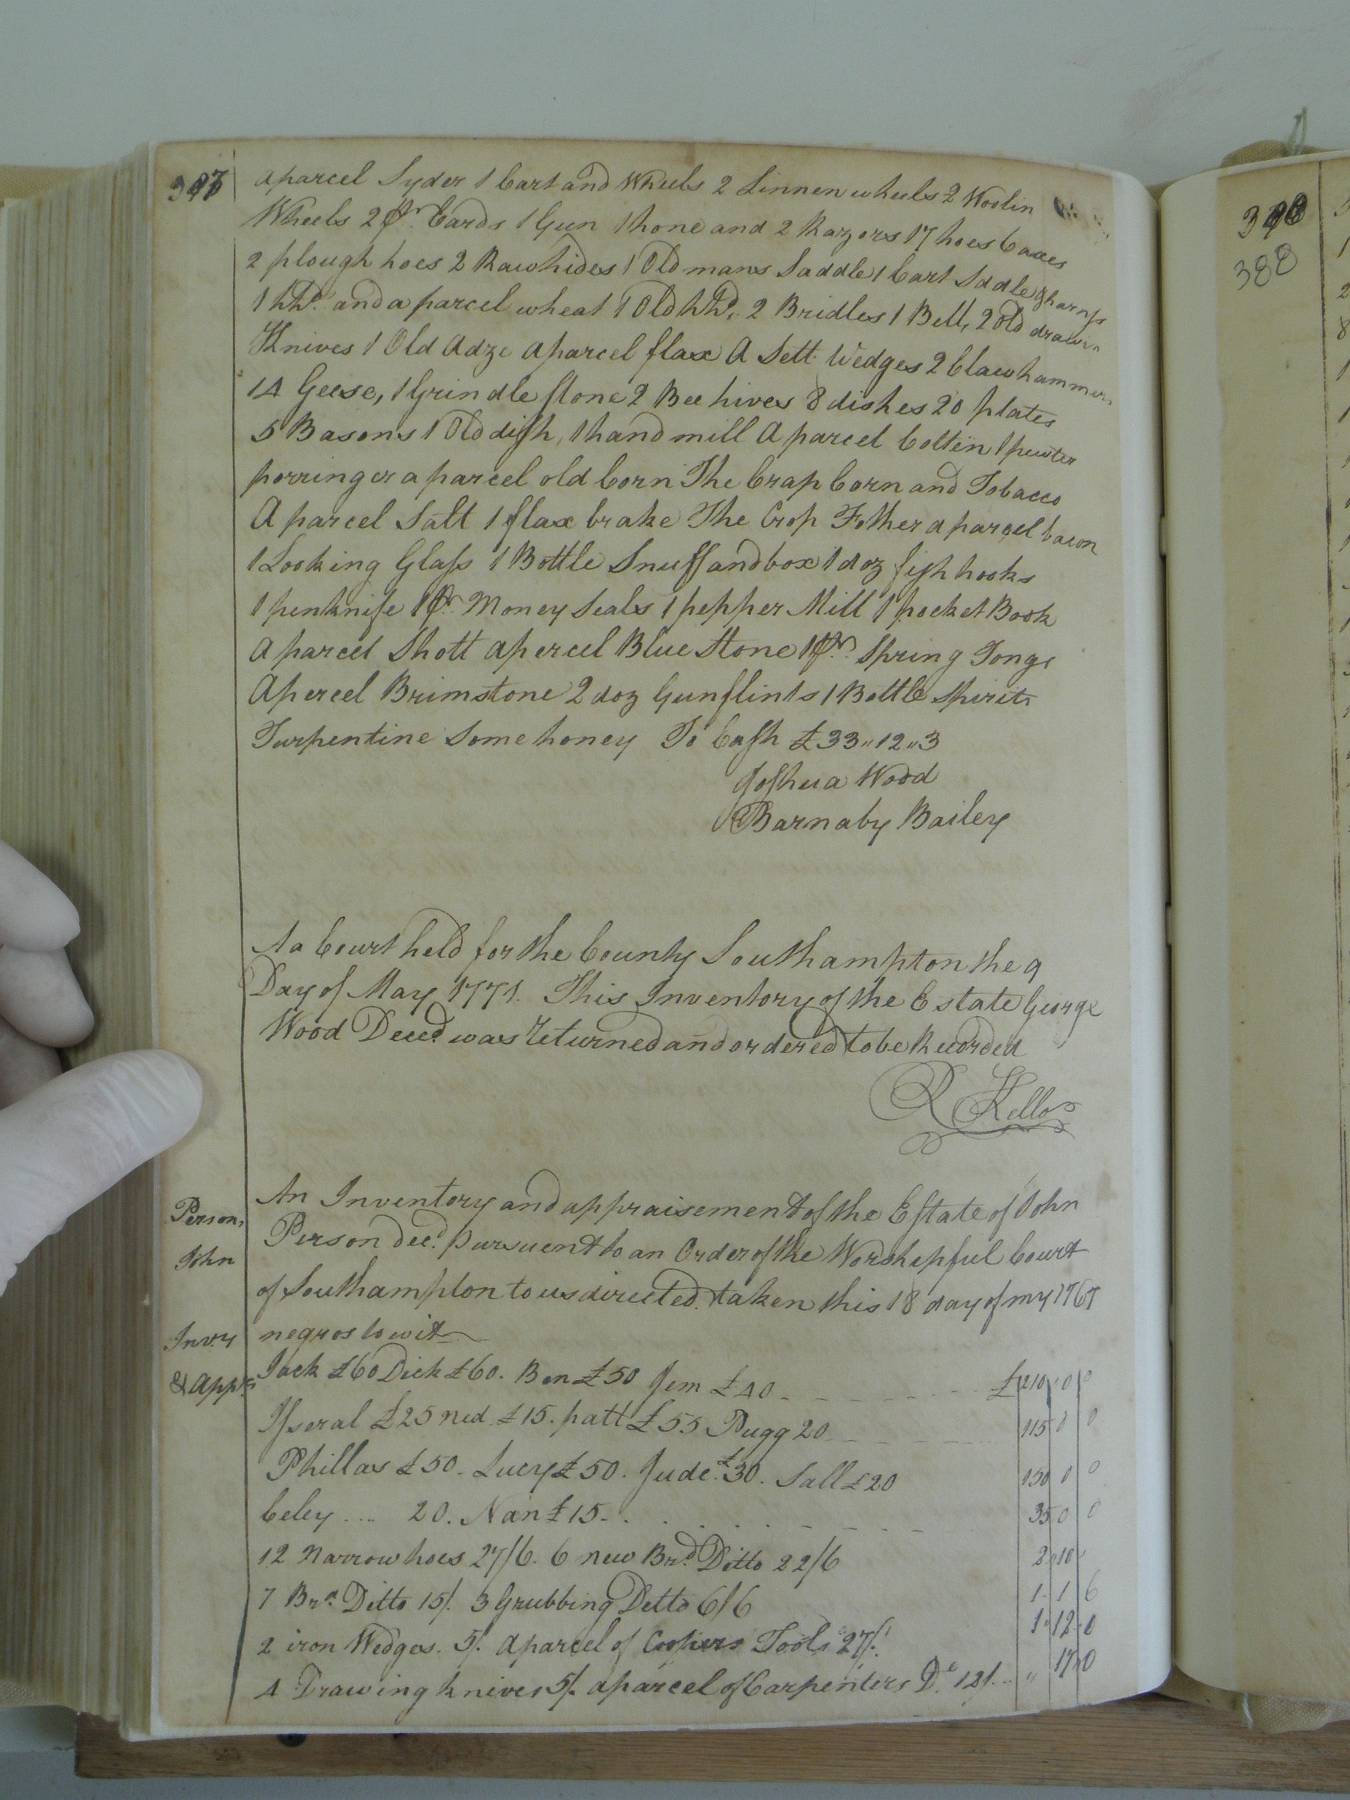 387
a parcel Syder 1 Cart and Wheels 2 Linnen wheels 2 Woolin
Wheels 2 pr Cards 1 Gun 1 hone and 2 Razors 17 hoes 6 axes
2 plough hoes 2 Rawhides 1 Old mans Saddle 1 Cart Sddle & harnes
1 hhd. and a parcel wheat 1 Old hhd. 2 Bridles 1 Bell, 2 old drawin
Knives 1 Old Adze a parcel flax A Sett Wedges 2 Claw hammers
14 Geese, 1 Grindle stone 2 Bee hives 8 dishes 20 plates
5 Basons 1 Old dish, 1 hand mill A parcel Cotten 1 pewter
porringer a parcel old Corn The Crap Corn and Tobacco
A parcel Salt 1 flax brake The Crop Fother a parcel bacon
1 Looking Glass 1 Bottle Snuff and box 1 doz fish hooks
1 penknife 1 pr Money Seals 1 pepper Mill 1 pocket Book
A parcel Shott a percel Blue Stone 1 pr. Spring Tongs
A percel Brimstone 2 doz Gunflints 1 Bottle Spirits
Turpentine Some honey To Cash £33 " 12 " 3
Joshua Wood
Barnaby Bailey
At a Court held for the County Southampton the 9
Day of May 1771. This Inventory of the Estate George
Wood Deced was returned and ordered to be Recorded
R Kello
Person,
John
Invy
& Appt
An Inventory and appraisement of the Estate of John
Person decd. pursuent to an Order of the Worshepful Court
of Southampton to us directed. taken this 18 day of my 1767
negros to wit
Jack £60 Dick £60. Ben £50 Jem £40 £ 210 0 0
Isseral £25 ned £15. patt £55 Pugg 20 115 0 0
Phillas £50. Lucy £50. Jude £30. Sall £20 150 0 0
Celey .... 20. Nan £15 35 0 0
12 Narrow hoes 27/6. 6 new Brd. Ditto 22/6 2 10
7 Brd. Ditto 15/. 3 Grubbing Detto 6/6 1 1 6
2 iron Wedges. 5/. a parcel of Coopers Tools 27/. 1 12 0
4 Drawing knives 5/. a parcel of Carpenters Do. 12/. " 17 0
388
388